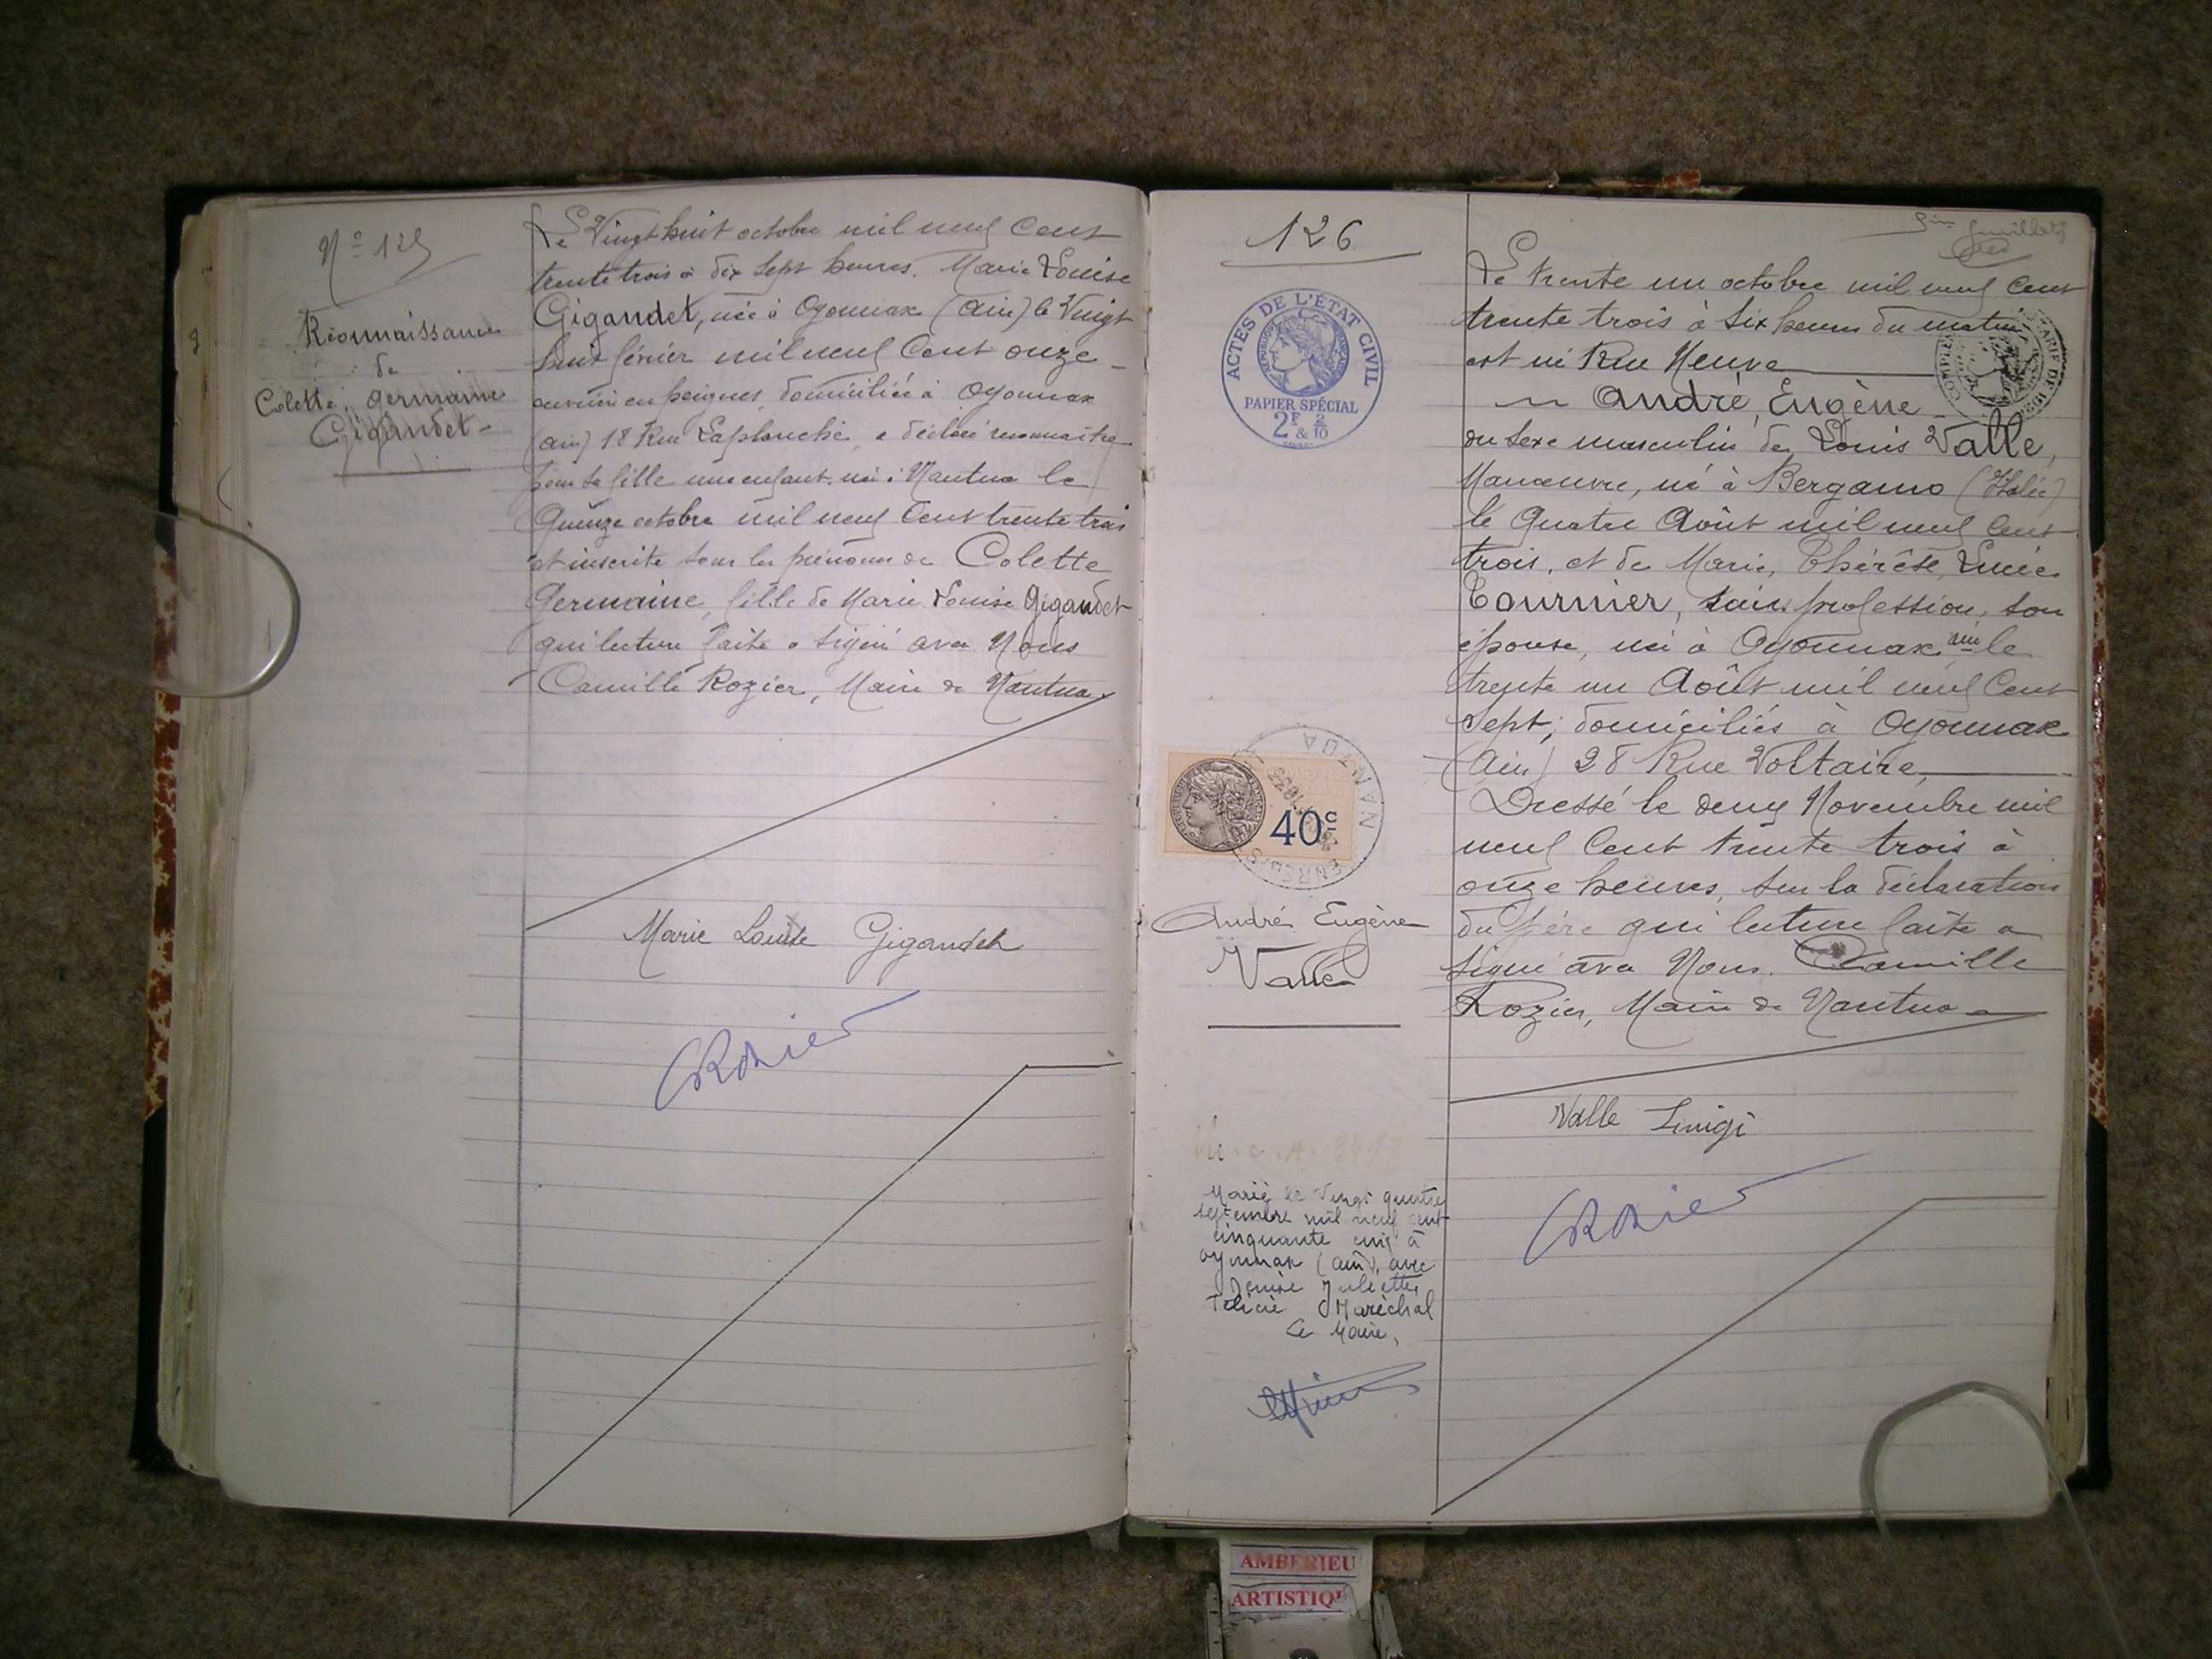 N° 125
Reconnaissance
de
Colette, Germaine
Gigandet
Le Vingt huit octobre mil neuf Cent
trente trois à dix sept heures. Marie Louise
Gigandet, née à Oyonnax (Ain) le Vingt
huit février mil neuf Cent onze
ouvrière en peignes, domiciliée à Oyonnax
(Ain) 18 Rue Laplanche, a déclaré reconnaître
pour sa fille une enfant née à Nantua le
Quinze octobre mil neuf Cent trente trois
et inscrite sous les prénoms de Colette
Germaine, fille de Marie Louise Gigandet
qui lecture faite a signé avec Nous
Camille Rozier, Maire de Nantua
Marie Louise Gigandet
CRozier
126
ACTES DE L'ÉTAT CIVIL
PAPIER SPÉCIAL
2F & 2/10
40c
NANTUA
André Eugène
Valle
Marié le vingt quatre
septembre mil neuf cent
cinquante cinq à
Oyonnax (Ain), avec
Denise Juliette
Félicie Maréchal
Le Maire,
Le trente un octobre mil neuf Cent
trente trois à six heures du matin
est né Rue Neuve
André, Eugène
du sexe masculin de Louis Valle,
Manœuvre, né à Bergamo (Italie)
le Quatre Août mil neuf Cent
trois, et de Marie, Thérèse, Lucie
Tournier, sans profession, son
épouse, née à Oyonnax Ain le
trente un Août mil neuf Cent
sept; domiciliés à Oyonnax
(Ain) 28 Rue Voltaire,
Dressé le deux Novembre mil
neuf Cent trente trois à
onze heures, sur la déclaration
du père qui lecture faite a
signé avec Nous. Camille
Rozier, Maire de Nantua
Valle Luigi
CRozier
AMBERIEU
ARTISTIQ